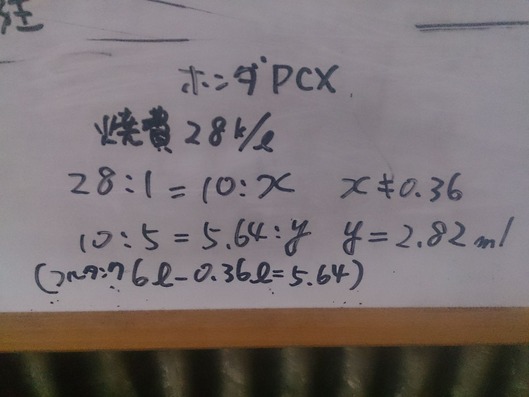 ホンダPCX
燃費28k/ℓ
28:1=10:x x≠0.36
10:5=5.64:y y=2.82ml
6ℓ-0.36ℓ=5.64)